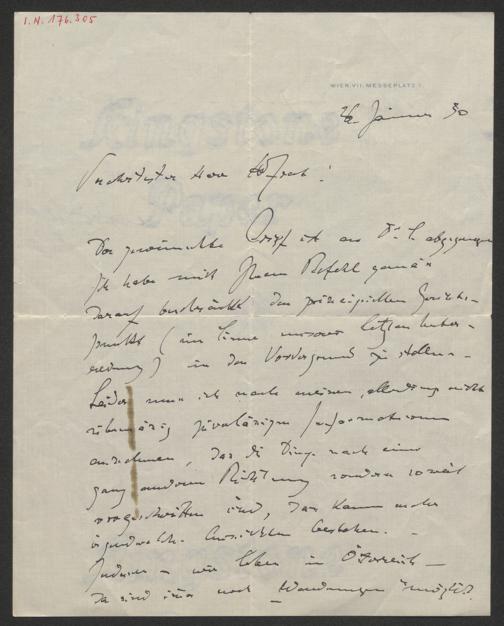 I.N. 176.305
WIEN, VII. MESSEPLATZ 1
26. Jänner 30
Verehrtester Herr
Der gewünschte Brief ist an Dr. S. abgegangen
Ich habe mich Ihrem Befehl gemäß
darauf beschränkt den prinzipiellen Gesichts-
punkt (im Sinne unserer letzten Unter-
redung) in den Vordergrund zu stellen.
Leider muss ich nach meinen, allerdings nicht
zuverlässigen Informationen
annehmen, dass die Dinge nach einer
ganz anderen Richtung soweit
vorgeschritten sind, dass kaum mehr
irgendwelche Aussichten bestehen. –
Indessen – wir leben in Österreich –
da sind immer noch Wendungen möglich.